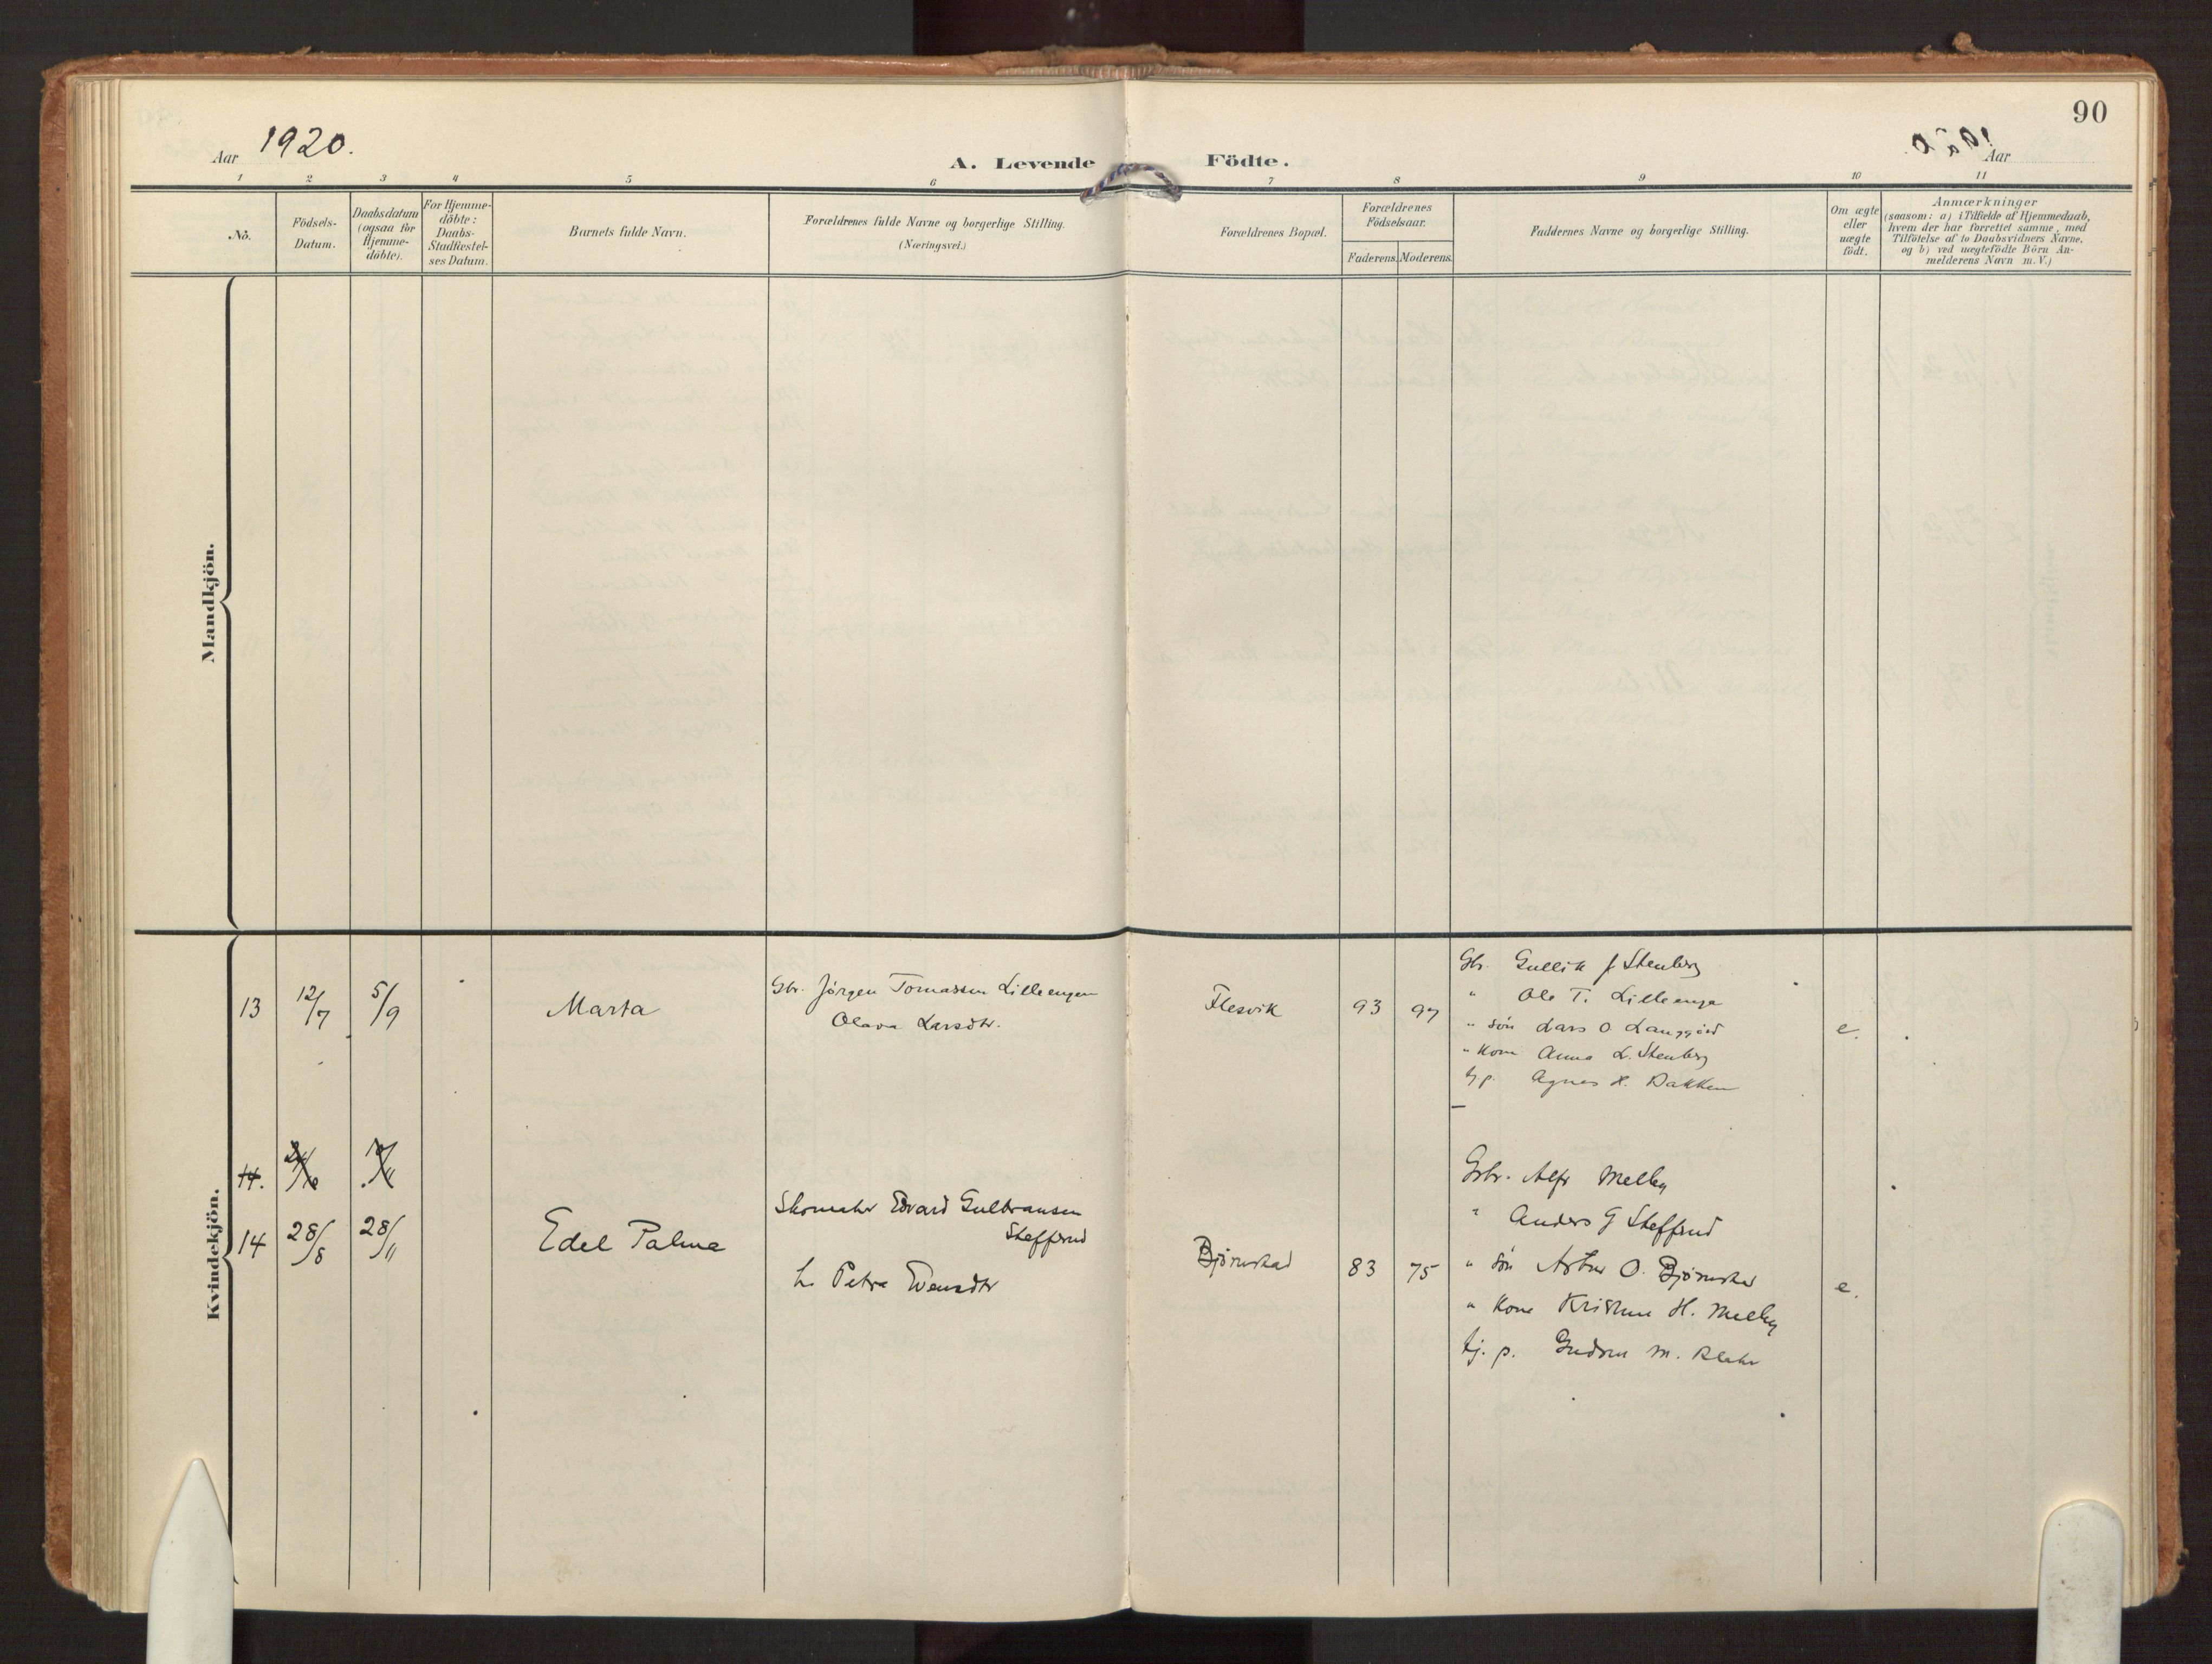 90
Aar 1920.
A. Levende Födte.
Aar
1 2 3 4 5 6 7 8 9 10 11
No.
Födsels-
Datum.
Daabsdatum
(ogsaa for
Hjemme-
döbte).
For Hjemme-
döbte:
Daabs-
Stadfæstel-
ses Datum.
Barnets fulde Navn.
Forældrenes fulde Navne og borgerlige Stilling.
(Næringsvei.)
Forældrenes Bopæl.
Forældrenes
Födselsaar.
Faderens. Moderens.
Faddernes Navne og borgerlige Stilling.
Om ægte
eller
uægte
födt.
Anmærkninger
(saasom: a) i Tilfælde af Hjemmedaab,
hvem der har forrettet samme, med
Tilföielse af to Daabsvidners Navne,
og b) ved uægtefödte Börn An-
melderens Navn m. V.)
Mandkjön.
Kvindekjön.
13 12/7 5/9 Marta
Gbr. Jørgen Tomassen Lilleengen
Olava Larsdtr.
Flesvik 93 97
Gbr. Gullik J Stenberg
" Ole T. Lilleengen
" søn Lars O. Langgård
" Kone Anna L. Stenberg
tj p. Agnes H. Bakken
e.
14.
14 28/8 28/11 Edel Palma
Skomaker Edvard Gulbransen
Steffsrud
h. Petra Evensdtr
Bjørnstad 83 75
Gbr. Alfr Melby
" Anders G Steffsrud
" søn Artur O. Bjørnstad
" Kone Kristine H. Melby
tj. p. Gudrun M.
e.